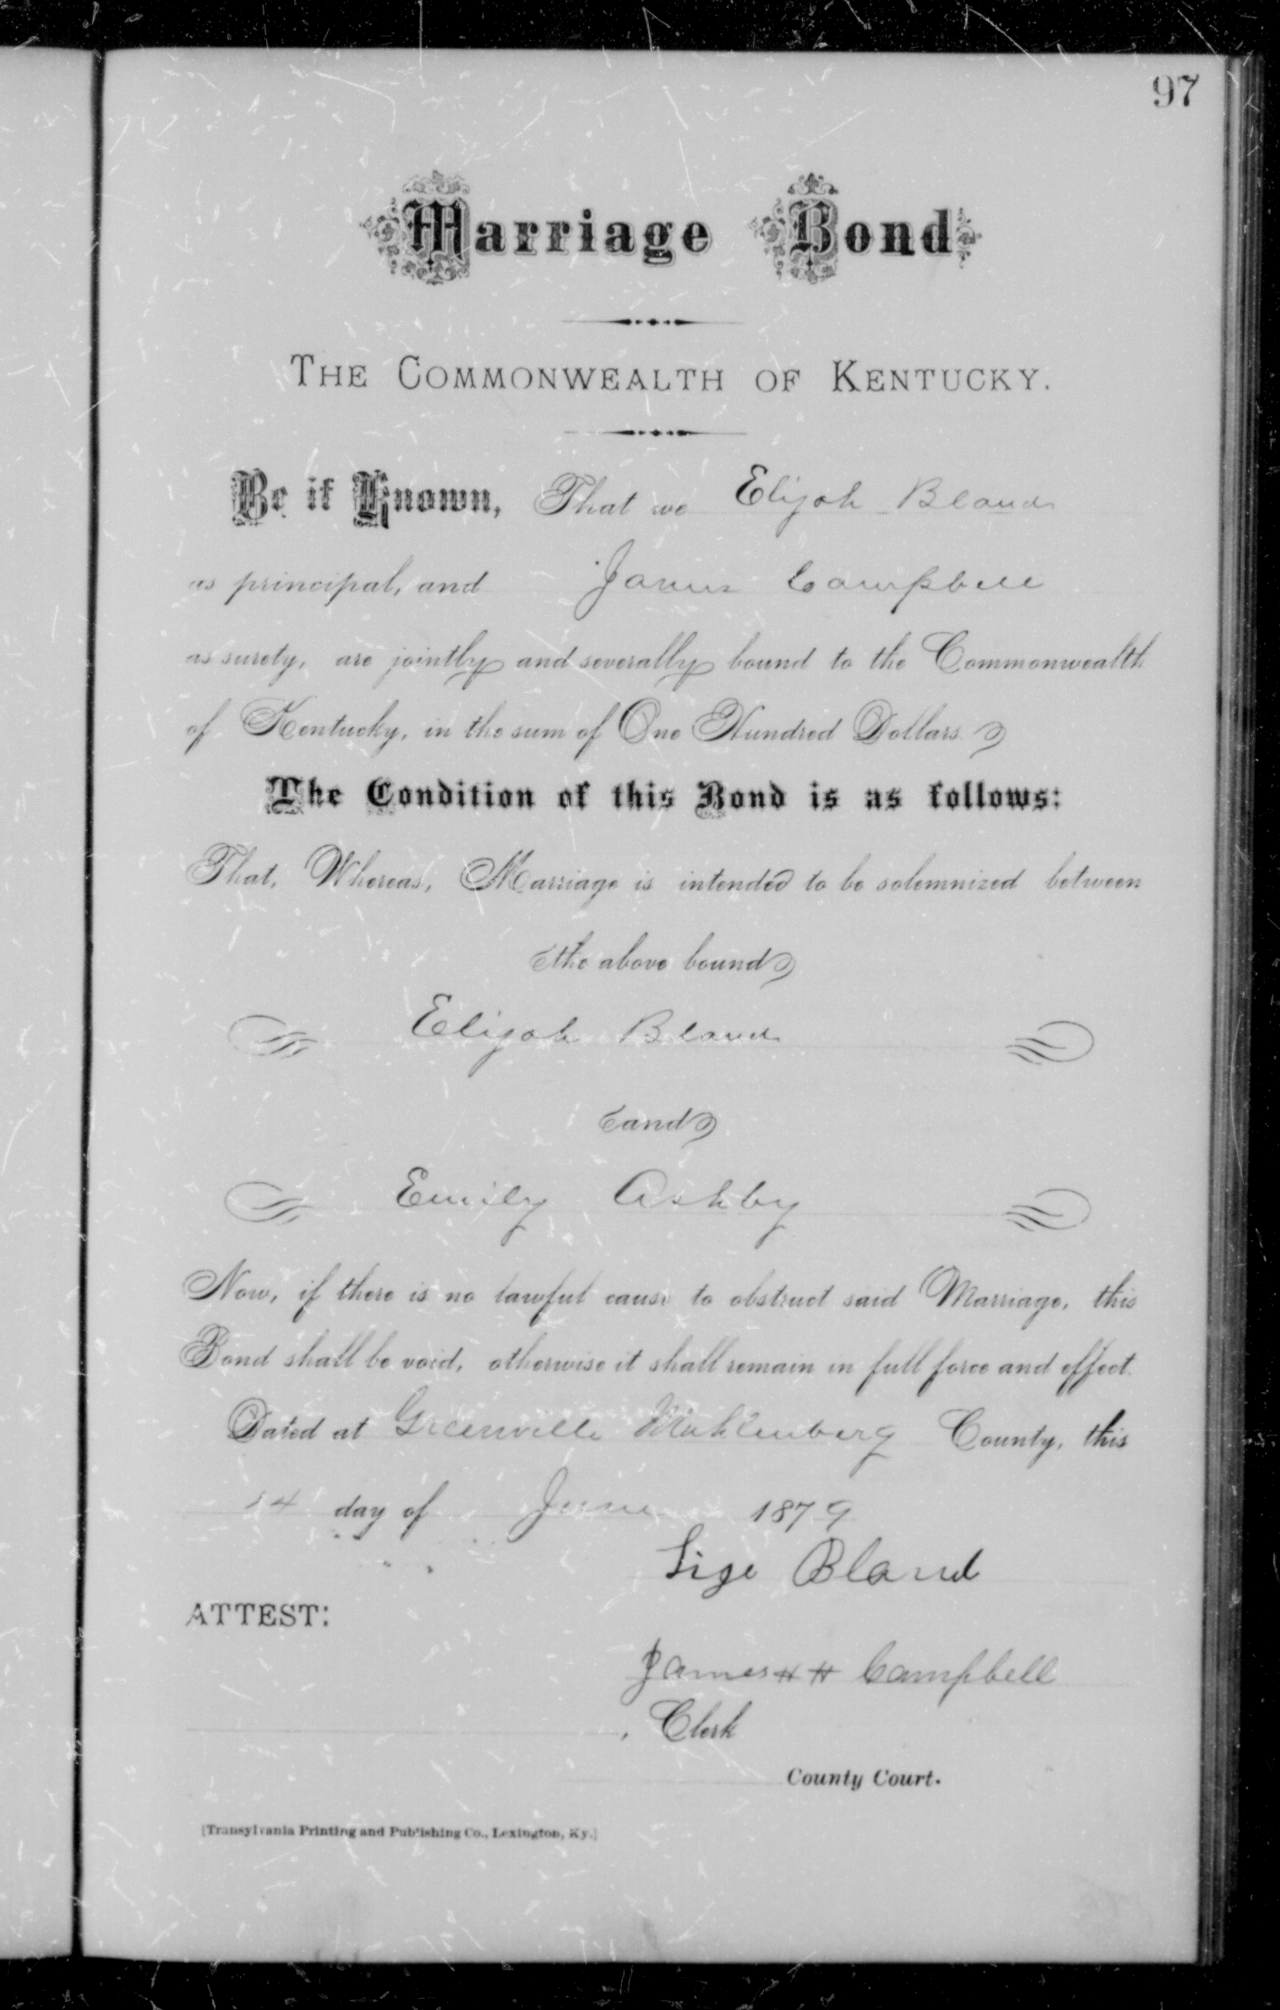 97
Marriage Bond
THE COMMONWEALTH OF KENTUCKY.
Be it Known, That we Elijah Bland
as principal, and James Campbell
as surety, are jointly and severally bound to the Commonwealth
of Kentucky, in the sum of One Hundred Dollars.
The Condition of this Bond is as follows:
That, Whereas, Marriage is intended to be solemnized between
the above bound
Elijah Bland
and
Emily Ashby
Now, if there is no lawful cause to obstruct said Marriage, this
Bond shall be void, otherwise it shall remain in full force and effect.
Dated at Greenville Muhlenberg County, this
14 day of June 1879
Lige Bland
ATTEST:
James H H Campbell
, Clerk
County Court.
[Transylvania Printing and Publishing Co., Lexington, Ky.]